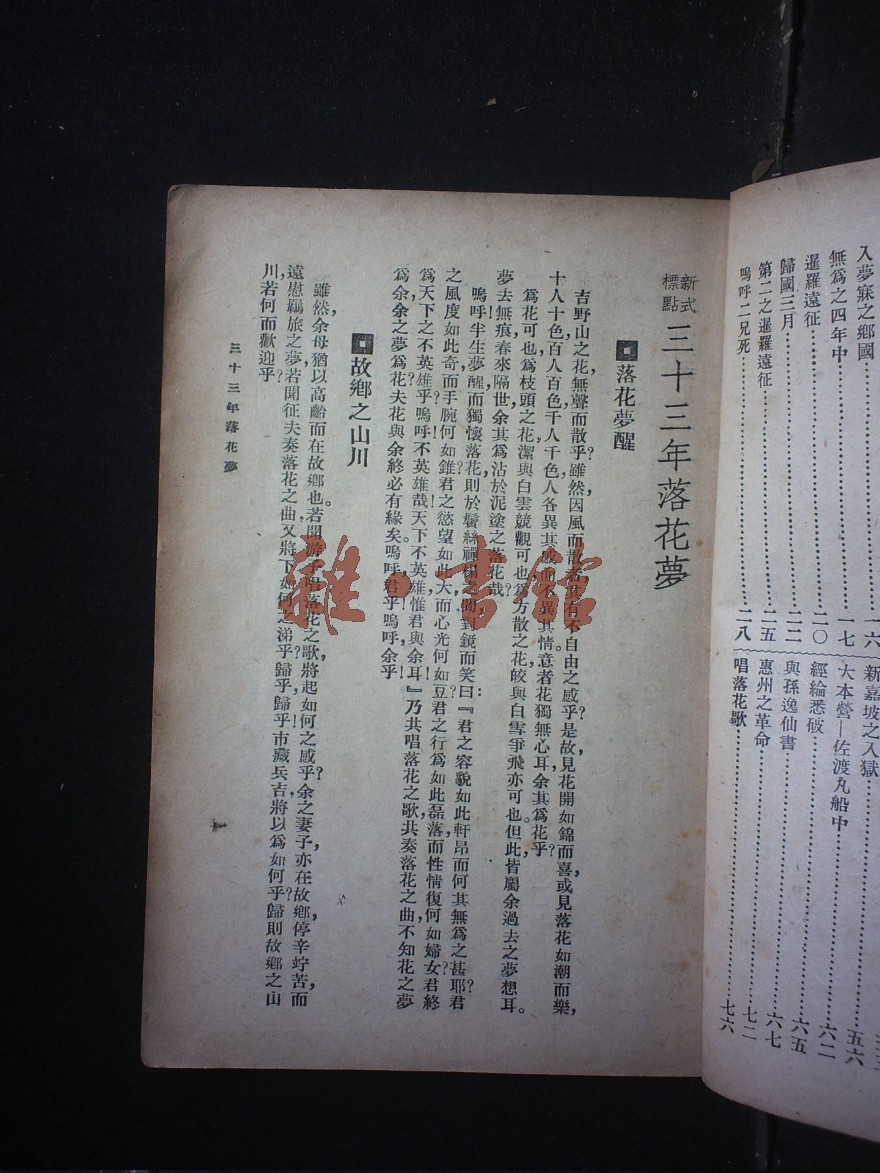 入夢寐之鄉國……一六
無爲之四年中……一七
暹羅遠征……二〇
歸國三月……二二
第二之暹羅遠征……二五
嗚呼二兄死……二八
新嘉坡之入獄
大本營—佐渡丸船中……五六
經綸悉破……六二
與孫逸仙書……六五
惠州之革命……六七
唱落花歌……七二
七六
新式標點 三十三年落花夢
落花夢醒
吉野山之花，無聲而散乎？雖然，因風而散者，其有不自由之感乎？是故見花開如錦而喜，或見落花如潮而樂，
十人十色，百人百色，千人千色，人各異其感，而不異其情。意者花獨無心耳，余其爲花乎？
爲花可也，爲枝頭之花，潔與白雲競觀可也，爲方散之花，皎與白雪爭飛亦可也。但此皆屬余過去之夢想耳。
夢去無痕，春來隔世，余其爲沾於泥塗之落花哉！
嗚呼！半生夢醒，而獨懷落花，則於鬢絲禪榻之間，對鏡而笑曰：『君之容貌如此軒昂，而何其無爲之甚耶？君
之風度如此奇，而手腕何如錐？君之慾望如此大，而心光何如豆？君之行爲如此磊落，而性情復何如婦女？君終
爲天下之不英雄乎！嗚呼！不英雄哉！天下不英雄，惟君與余耳！』乃共唱落花之歌，共奏落花之曲，不知花之夢
爲余，余之夢爲花？夫花與余，終必有緣矣。嗚呼君乎！嗚呼余乎！
故鄉之山川
雖然，余母猶以高齡而在故鄉也。若聞游子唱落花之歌，將起如何之感乎？余之妻子，亦在故鄉，停辛竚苦，而
遠慰羈旅之夢，若聞征夫奏落花之曲，又將下如何之涕乎！歸乎歸乎！市藏兵吉，將以爲如何乎？歸則故鄉之山
川，若何而歡迎乎？
三十三年落花夢
一
雜·書館